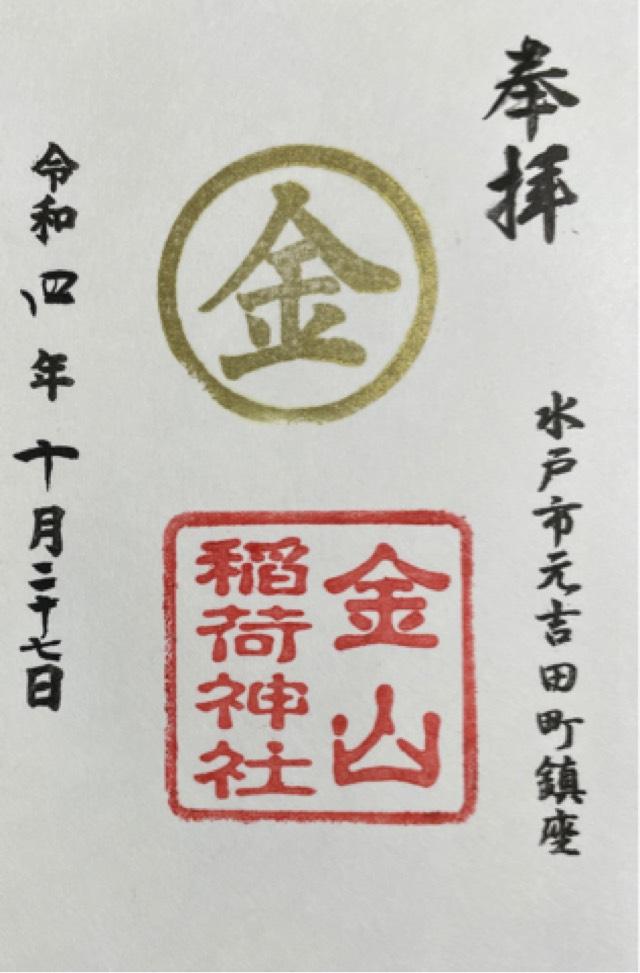 奉拝
水戸市元吉田町鎮座
金
金山
稲荷神社
令和四年十月二十七日